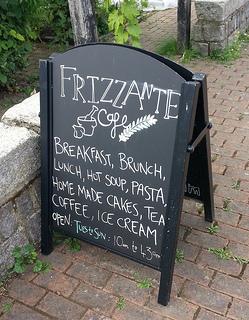 FRIZZANTE
Cafe
BREAKFAST, BRUNCH,
LUNCH, HOT SOUP, PASTA,
HOME MADE CAKES, TEA
COFFEE, ICE CREAM
OPEN: TUES to SUN: 10am to 4:30pm